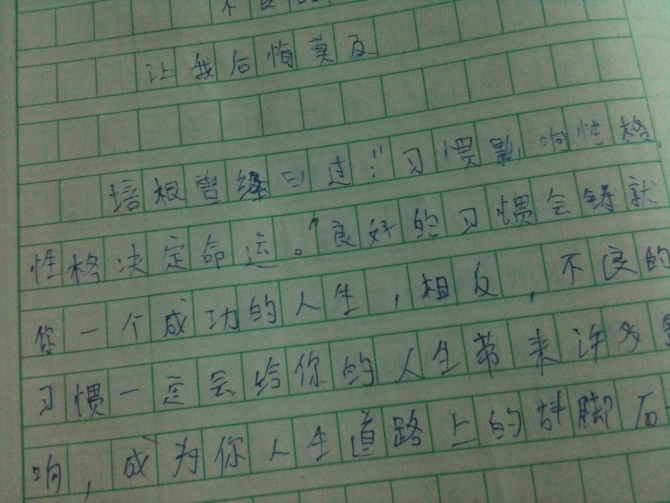 让我后悔莫及
培根曾过:“习惯影响性格
性格决定命运。”良好的习惯会铸就
你一个成功的人生,相反,不良的
习惯一定会给你的人生带来许多
响,成为你人生道路上的绊脚石